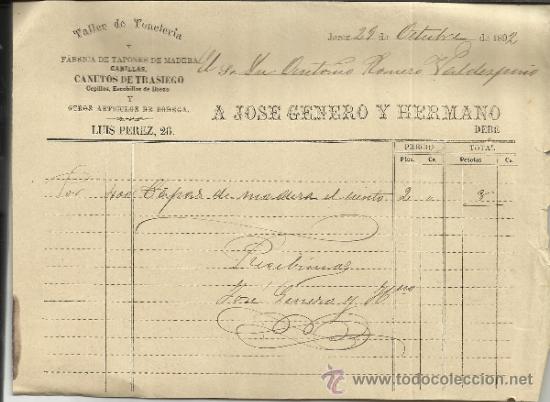 Taller de Toneleria
Y
FÁBRICA DE TAPONES DE MADERA
CANILLAS,
CANUTOS DE TRASIEGO
Cepillos, Escobillas de
Y
OTROS ARTICULOS DE BODEGA.
LUIS PEREZ, 26.
Jerez 29 de Octubre de 1892
El Sr Dn Antonio Romero Valdespino
A JOSE GENERO Y HERMANO
DEBE
PRECIO TOTAL
Ptas. Cs. Pesetas Cs.
Por Tapas de madera el ciento 2 " 3
Recibimos
José Genero y Hno
todocoleccion.net